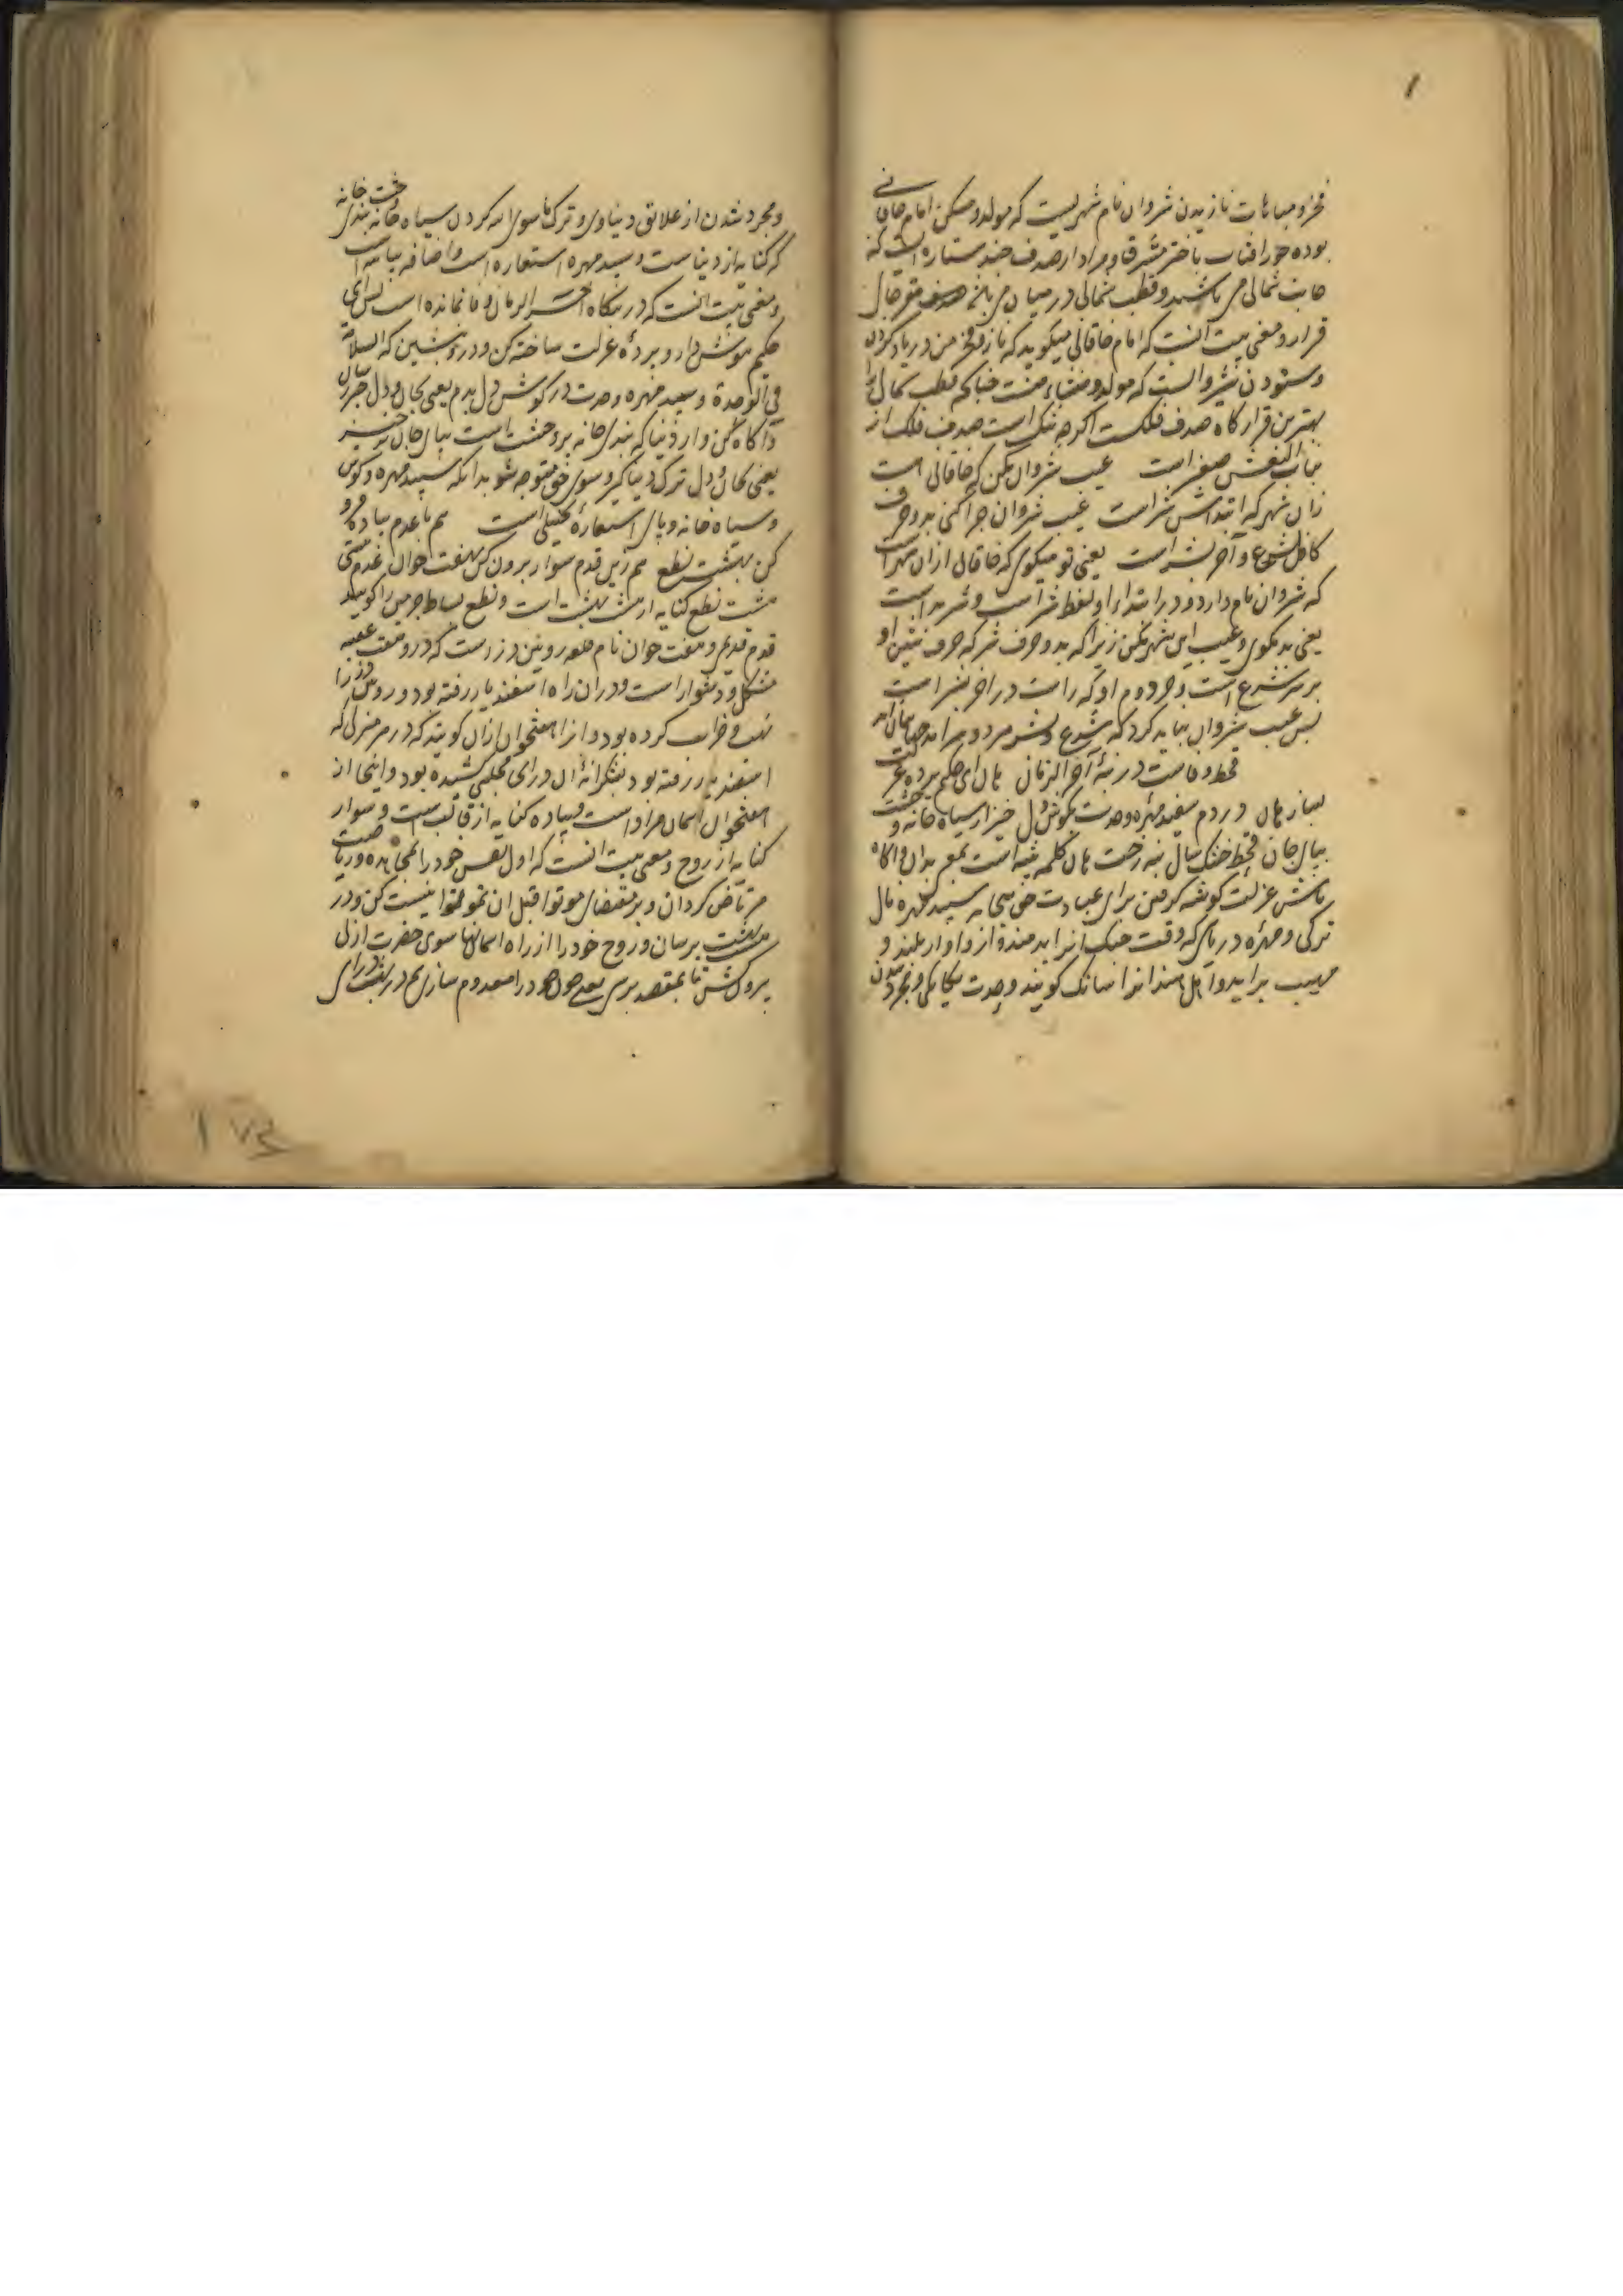 ۱
فخر و مباهات نازیدن شروان نام شهریست که مولد و مسکن امام خاقانی
بوده خور افتاب باختر مشرق و مراد از صدف چند ستاره است که
جانب شمالی می باشند و قطب شمالی در میان
قرار و معنی بیت آنست که امام خاقانی میگوید که ناز و فخر من در یاد کردن
و ستودن شروانست که مولد و منشاء منست چنانکه قطب شمالی را
بهترین قرار گاه صدف فلکست اگرچه تنک است صدف فلک از
بنات النعش صغر است عیب شروان مکن که خاقانی است
زان شهر که ابتداش شر است عیب شروان چرا کنی بدو حرف
کاول شرع و آخر بشر است یعنی تو میکوی که خاقانی ازان شهر است
که شروان نام دارد و در ابتداء او لفظ شر است و شر بد است
یعنی بد مکوی و عیب این شهر مکن زیرا که بدو حرف شر که حرف شین او
بر سر شرع است و حرف دوم او که را است در اخر بشر است
پس عیب شروان نباید کرد که شرع و بشر هر دو
قحط وفاست در بنهٔ آخر الزمان هان ای حکیم پردهٔ عزلت
بساز هان در دم سفید مهرهٔ وحدت بکوش دل خیز از سیاه خانهٔ وحشت
بپای جان قحط خشک سال بنه رخت هان کلمه تنبیه است بمعنی بدان و اکاه
باش عزلت کوشه کرفتن برای عبادت حق سپید مهره نای
ترکی و مهرهٔ دریای که وقت جنک انرا بدمند و از و اواز بلند و
مهیب براید و اهل هند انرا سانک کویند وحدت یکانکی و مجرد شدن
و مجرد شدن از علائق دنیاوی و ترک ما سوی الله کردن سیاه خانه وحشت خانه بندی
که کنایه از دنیاست و سپید مهره استعاره است و اضافه بیانیه است
و معنی بیت انست که در بنکاه اخر الزمان وفا نمانده است پس ای
حکیم هوش دار و پردهٔ عزلت ساخته کن و درو بنشین که السلامة
فی الوحدة و سپید مهره وحدت در کوش دل بدم یعنی بجان و دل
و اکاه کن و از دنیا که بندی خانه پر وحشت است بپای جان بر خیز
یعنی بجان و دل ترک دنیا کیر و سوی حق متوجه شو بدانکه سپید مهره و کوش
و سیاه خانه و پای استعارهٔ تخییلی است هم با عدم پیاده فرو
کن بهشت نطع هم زین قدم سوار برون کش بهفت خوان عدم نیستی
هشت نطع کنایه از هشت بهشت است و نطع بساط چرمین را کویند
قدم قدیم و هفت خوان نام قلعه رویین دز است که درو هفت عقبه
مشکل و دشوار است و دران راه اسفندیار رفته بود و رویین دز را
نهب و خراب کرده بود و انرا هفتخوان ازان کویند که در هر منزلی که
اسفندیار رفته بود بشکرانهٔ آن ورای مجلسی کشیده بود و اینجا از
هفتخوان اسمان مراد است و پیاده کنایه از قالب است و سوار
کنایه از روح و معنی بیت انست که اول نفس خود را بمجاهده و ریاضت
مرتاض کردان و بر مقتضای موتوا قبل ان تموتوا نیست کن و در
هشت بهشت برسان و روح خود را از راه اسمانها سوی حضرت ازلی
برون کش تا بمقصد برسی یعنی چون خود را معدوم سازی هم در بهشت درای